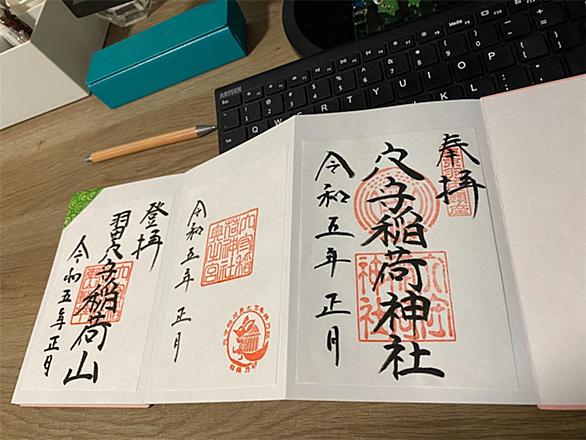 奉拝
穴守稲荷神社
令和五年 正月
穴守稲
荷神社
奥之宮
令和五年 正月
登拝
羽田穴守稲荷山
令和五年正月
ARTECK
Media
Q W E R T Y U I O P